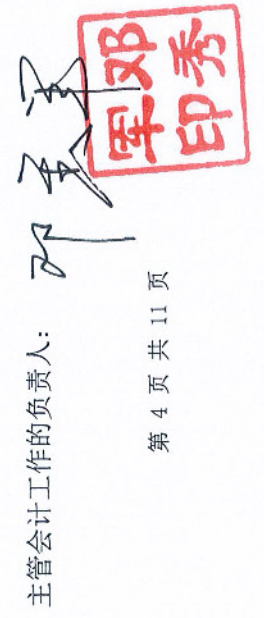 主管会计工作的负责人: 邓秀军
邓秀
军印
第 4 页 共 11 页